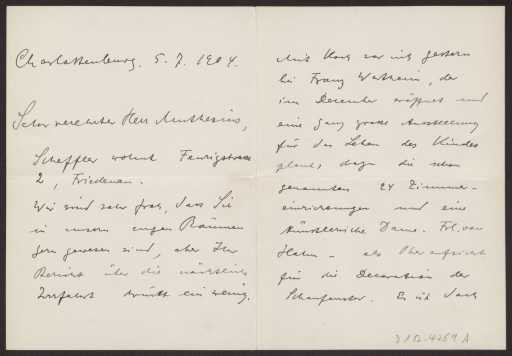 Charlottenburg. 5. 7. 1904.
Sehr verehrter Herr Muthesius,
Scheffler wohnt Feurigstrasse
2, Friedenau.
Wir sind sehr froh, dass Sie
in unsern engen Räumen
gern gewesen sind, aber Ihr
Bericht über die nächtliche
Irrfahrt drückt ein wenig.
Mit Koch war ich gestern
bei Franz Wertheim, der
im December eröffnet und
eine ganz grosse Ausstellung
für das Leben des Kindes
plant, dazu die schon
genannten 24 Zimmer-
einrichtungen und eine
künstlerische Dame. Frl. von
Hahn - als Oberaufsicht
für die Decoration der
Schaufenster. Es ist doch